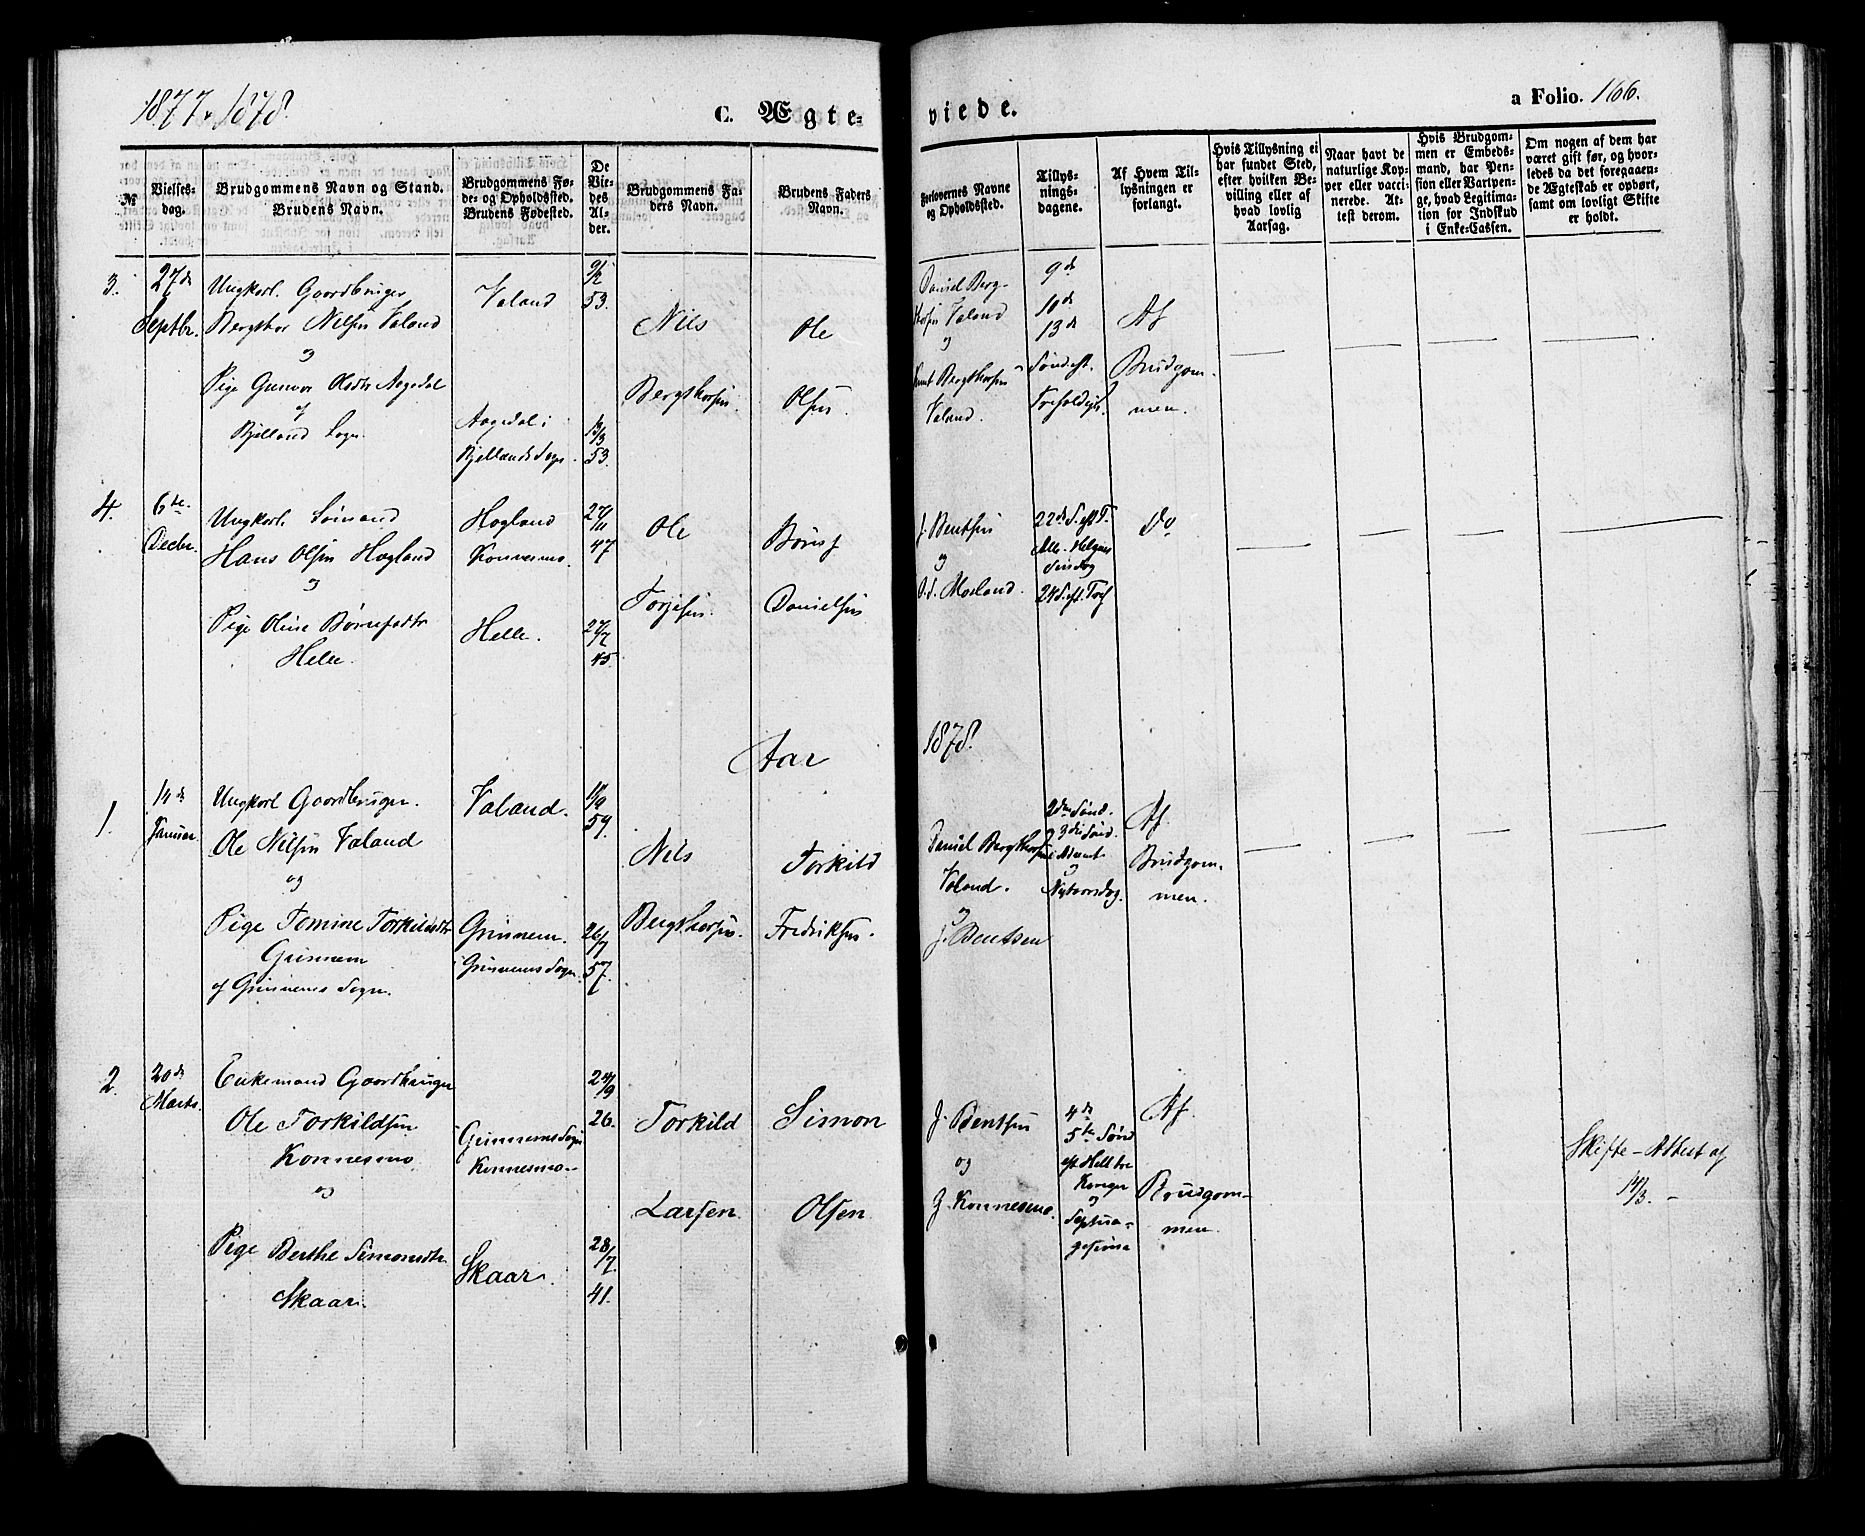 1877 & 1878.
C. Ægte-
viede.
a Folio. 166.
№
Vielses-
dag.
Brudgommens Navn og Stand.
Brudens Navn.
Brudgommens Fø-
de- og Opholdssted.
Brudens Fødested.
De
Vie-
des
Al-
der.
Brudgommens Fa-
ders Navn.
Brudens Faders
Navn.
Forlovernes Navne
og Opholdssted.
Tillys-
nings-
dagene.
Af Hvem Til-
lysningen er
forlangt.
Hvis Tillysning ei
har fundet Sted,
efter hvilken Be-
villing eller af
hvad lovlig
Aarsag.
Naar havt de
naturlige Kop-
per eller vacci-
nerede. At-
test derom.
Hvis Brudgom-
men er Embeds-
mand, har Pen-
sion eller Vartpen-
ge, hvad Legitima-
tion for Indskud
i Enke-Cassen.
Om nogen af dem har
været gift før, og hvor-
ledes da det foregaaen-
de Ægteskab er ophørt,
samt om lovligt Skifte
er holdt.
3.
27de
Septbr.
Ungkarl. Gaardbruger
Bergthor Nilsen Valand
og
Pige Gunvor Olsdtr Aagedal
af
Bjelland Sogn.
Valand
Aagedal i
Bjellands Sogn.
9/2
53.
13/3
53.
Nils
Bergthorsen.
Ole
Olsen.
Daniel Berg-
thorsen Valand
og
Bergthorsen
Valand.
9de
10de
13de
Sønd. eft.
Trefoldigh.
Af
Brudgom-
men.
4.
6te
Decbr.
Ungkarl. Sømand
Hans Olsen Hogland
og
Pige Oline Børufsdtr
Helle.
Hogland
Konnesmo.
Helle.
27/11
47
27/7
45.
Ole
Torjesen.
Børuf
Danielsen
J. Bentsen
og
O. d. Mosland.
22de S. eft. T.
Alle-Helgens
Søndag
24 S. eft. Tref
Do
Aar
1878.
1.
14de
Januar.
Ungkarl Gaardbruger.
Ole Nilsen Valand
og
Pige Tomine Torkildsdtr
Grinnem
af Grinnems Sogn.
Valand.
Grinnem.
i Grinnems Sogn.
11/9
59.
26/7
57.
Nils
Bergthorsen.
Torkild
Fredriksen.
Daniel Bergthorsen
Valand.
og
J. Bentsen
2den Sønd.
og 3die Sønd.
i Advent
og
Nytaarsdag.
Af
Brudgom-
men.
2.
20de
Marts.
Enkemand Gaardbruger
Ole Torkildsen
Konnesmo
og
Pige Berthe Simonsdtr
Skaar.
Grinnems Sogn
Konnesmo.
Skaar.
24/9
26.
28/7.
41.
Torkild
Larsen.
Simon
Olsen
J. Bentsen
og
G. Konnesmo.
4de
5te Sønd
eft Hell. tre
Konger
og
Septua-
gesima
Af
Brudgom-
men.
Skifte-Attest af
14/3. -